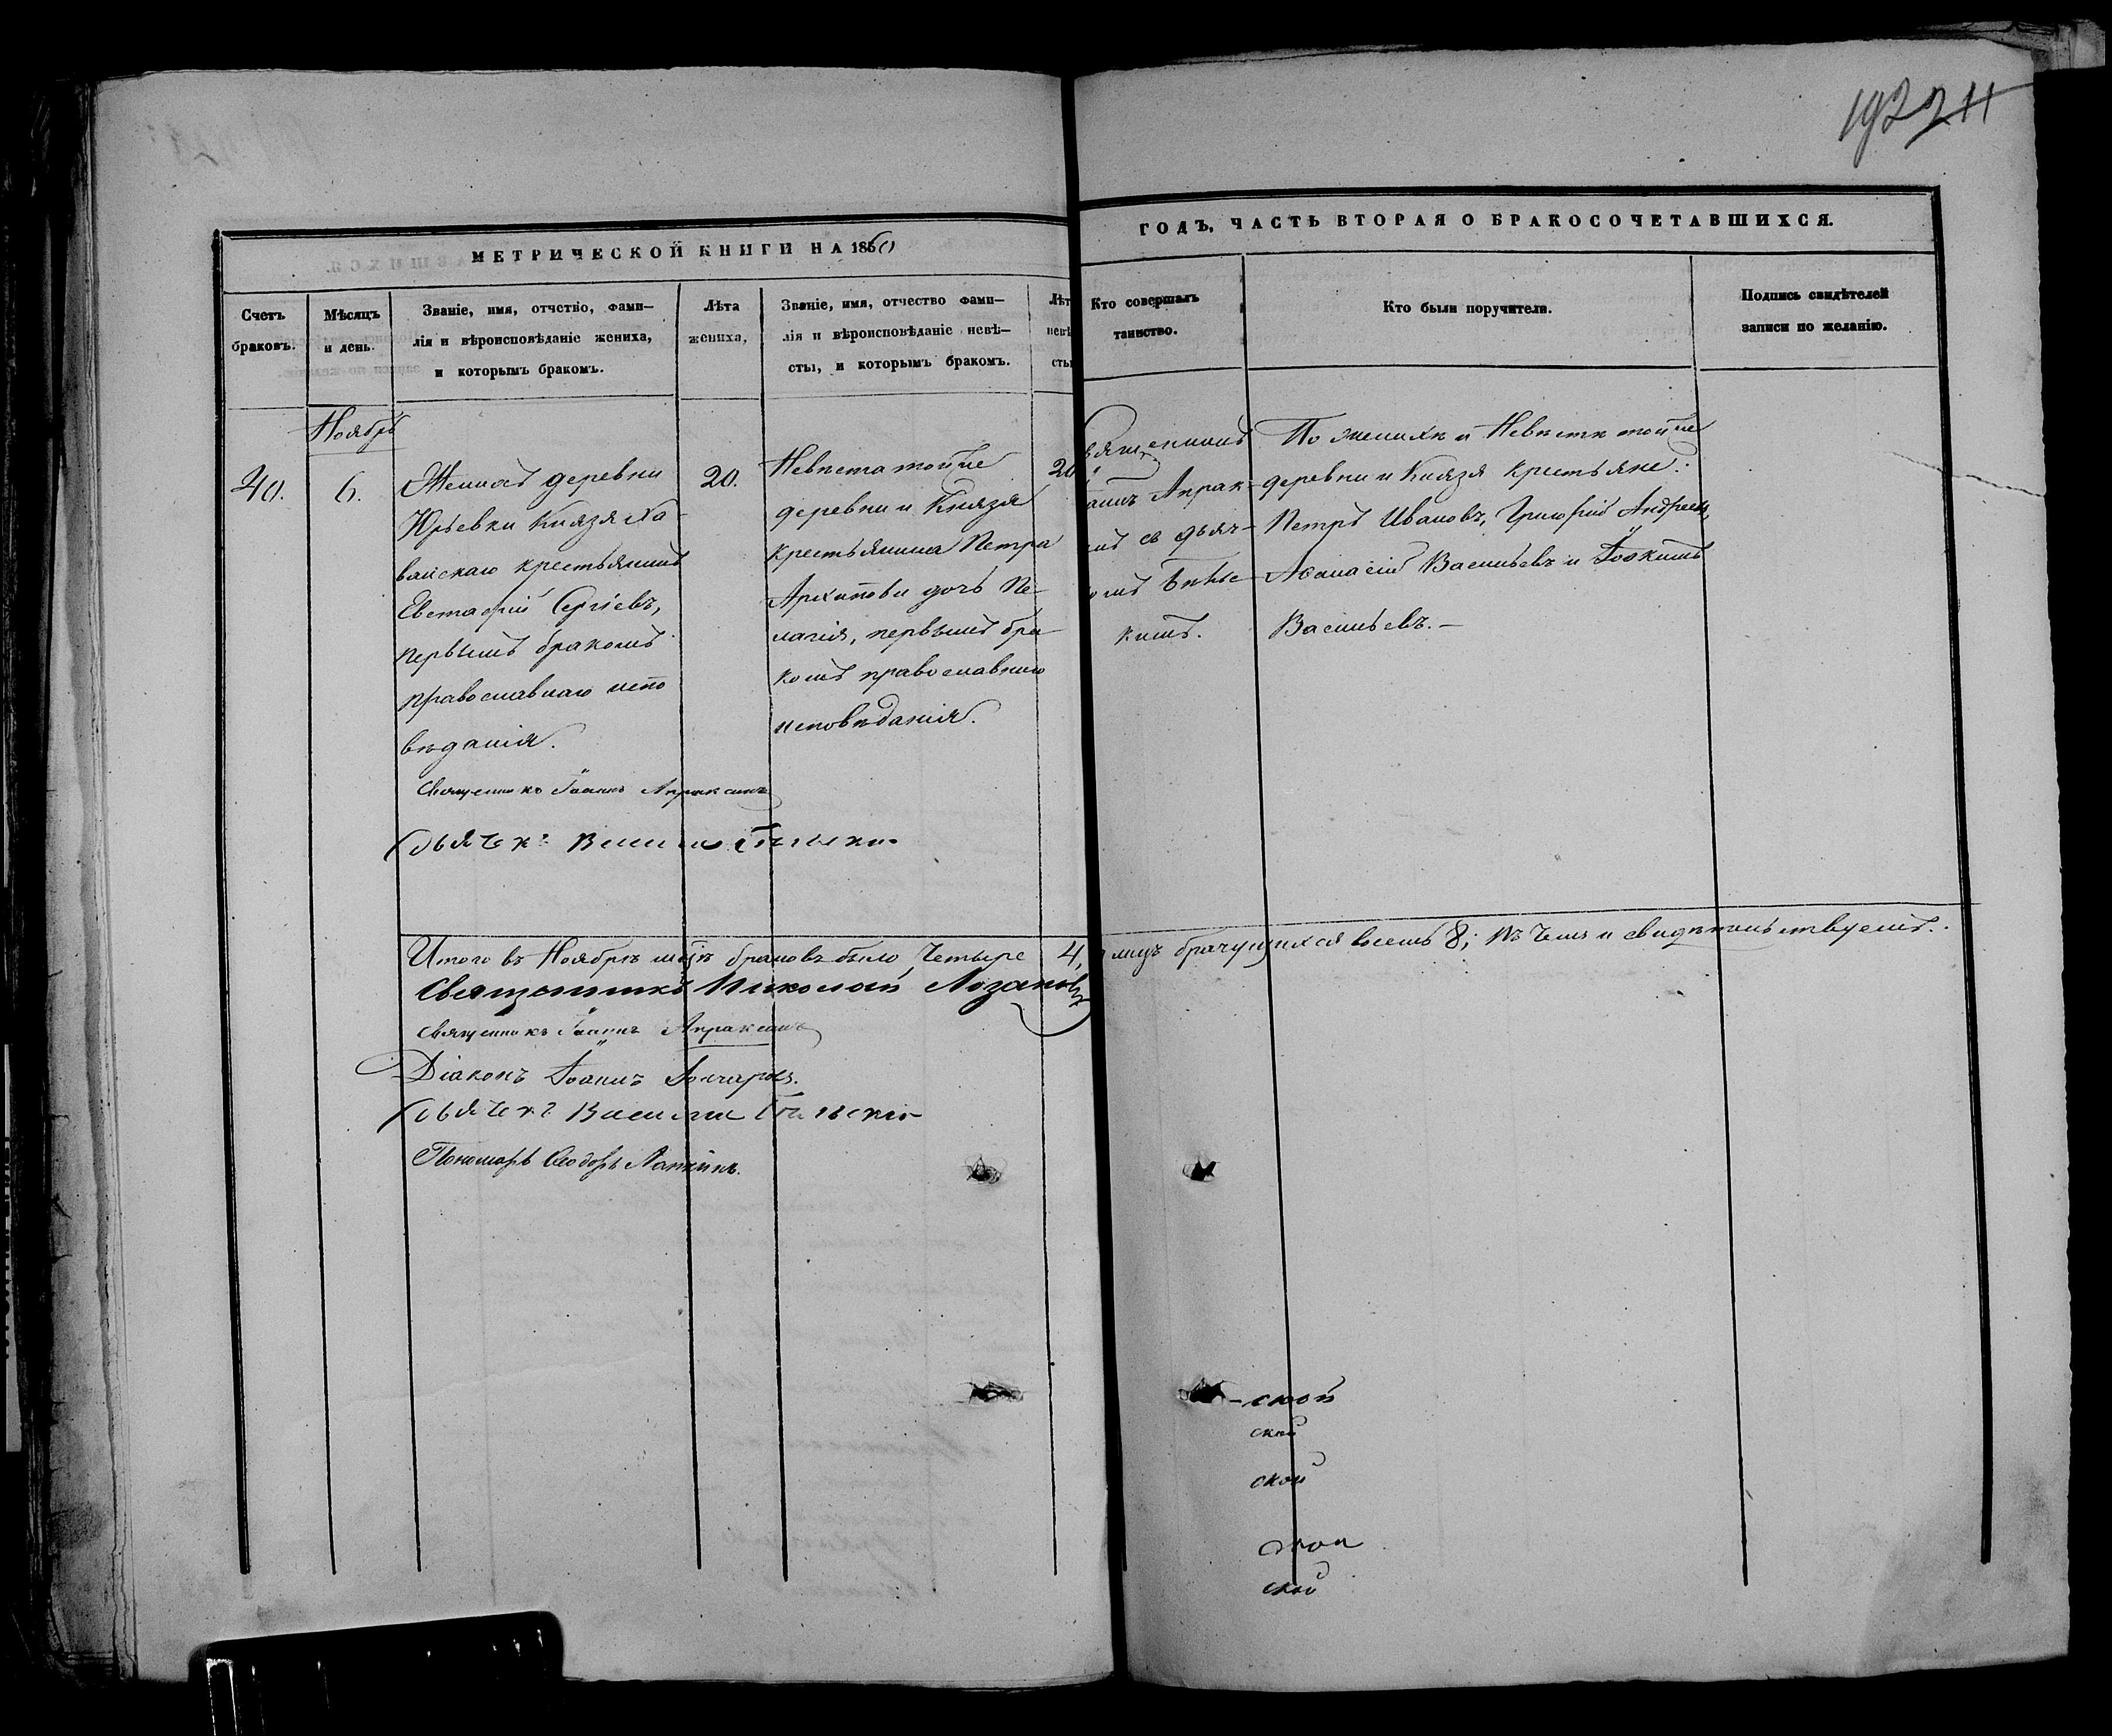 192
211
МЕТРИЧЕСКОЙ КНИГИ НА 1860
ГОДЪ, ЧАСТЬ ВТОРАЯ О БРАКОСОЧЕТАВШИХСЯ.
Счетъ
браковъ.
Мѣсяцъ
и день.
Званіе, имя, отчетво, фами–
лія и вѣроисповѣданіе жениха,
и которымъ бракомъ.
Лѣта
жениха,
Званіе, имя, отчество фами–
лія и вѣроисповѣданіе невѣ–
сты, и которымъ бракомъ.
Лѣт
невѣ
сты
Кто совершалъ
таинство.
Кто были поручители.
Подпись свидѣтелей
записи по желанію.
Ноябрь
40.
6.
Женихъ деревни
Юрьевки Князя Ха–
ванскаго крестьянинъ
Евстафій Сергіевъ,
первымъ бракомъ
православнаго испо
вѣданія.
20.
Невѣста той же
деревни и Князя
крестьянина Петра
Архипова дочь Пе–
лагія, первымъ бра–
комъ православнаго
исповѣданія.
20
вященникъ
аннъ Апрак–
инъ съ дьяч–
омъ Бѣльс–
кимъ.
По женихѣ и Невѣстѣ той же
деревни и Князя крестьяне:
Петръ Ивановъ, Григорій Андреевъ,
Аѳанасій Васильевъ и Іоакимъ
Васильевъ.–
Священникъ Іоаннъ Апраксинъ
Дьячекъ Василий Бѣльскій
Итого въ Ноябрѣ мѣсяцѣ браковъ было Четыре 4,
лицъ брачущихся восемь 8; въ чемъ и свидѣтельствуемъ.
Священникъ Николай Лозановъ
Священникъ Іоаннъ Апраксинъ
Діаконъ Іоаннъ Гончаровъ.
Дьячекъ Василий Бѣльскій
Пономарь Ѳеодоръ Лапкинъ.
–ской
ской
ской
ской
ской